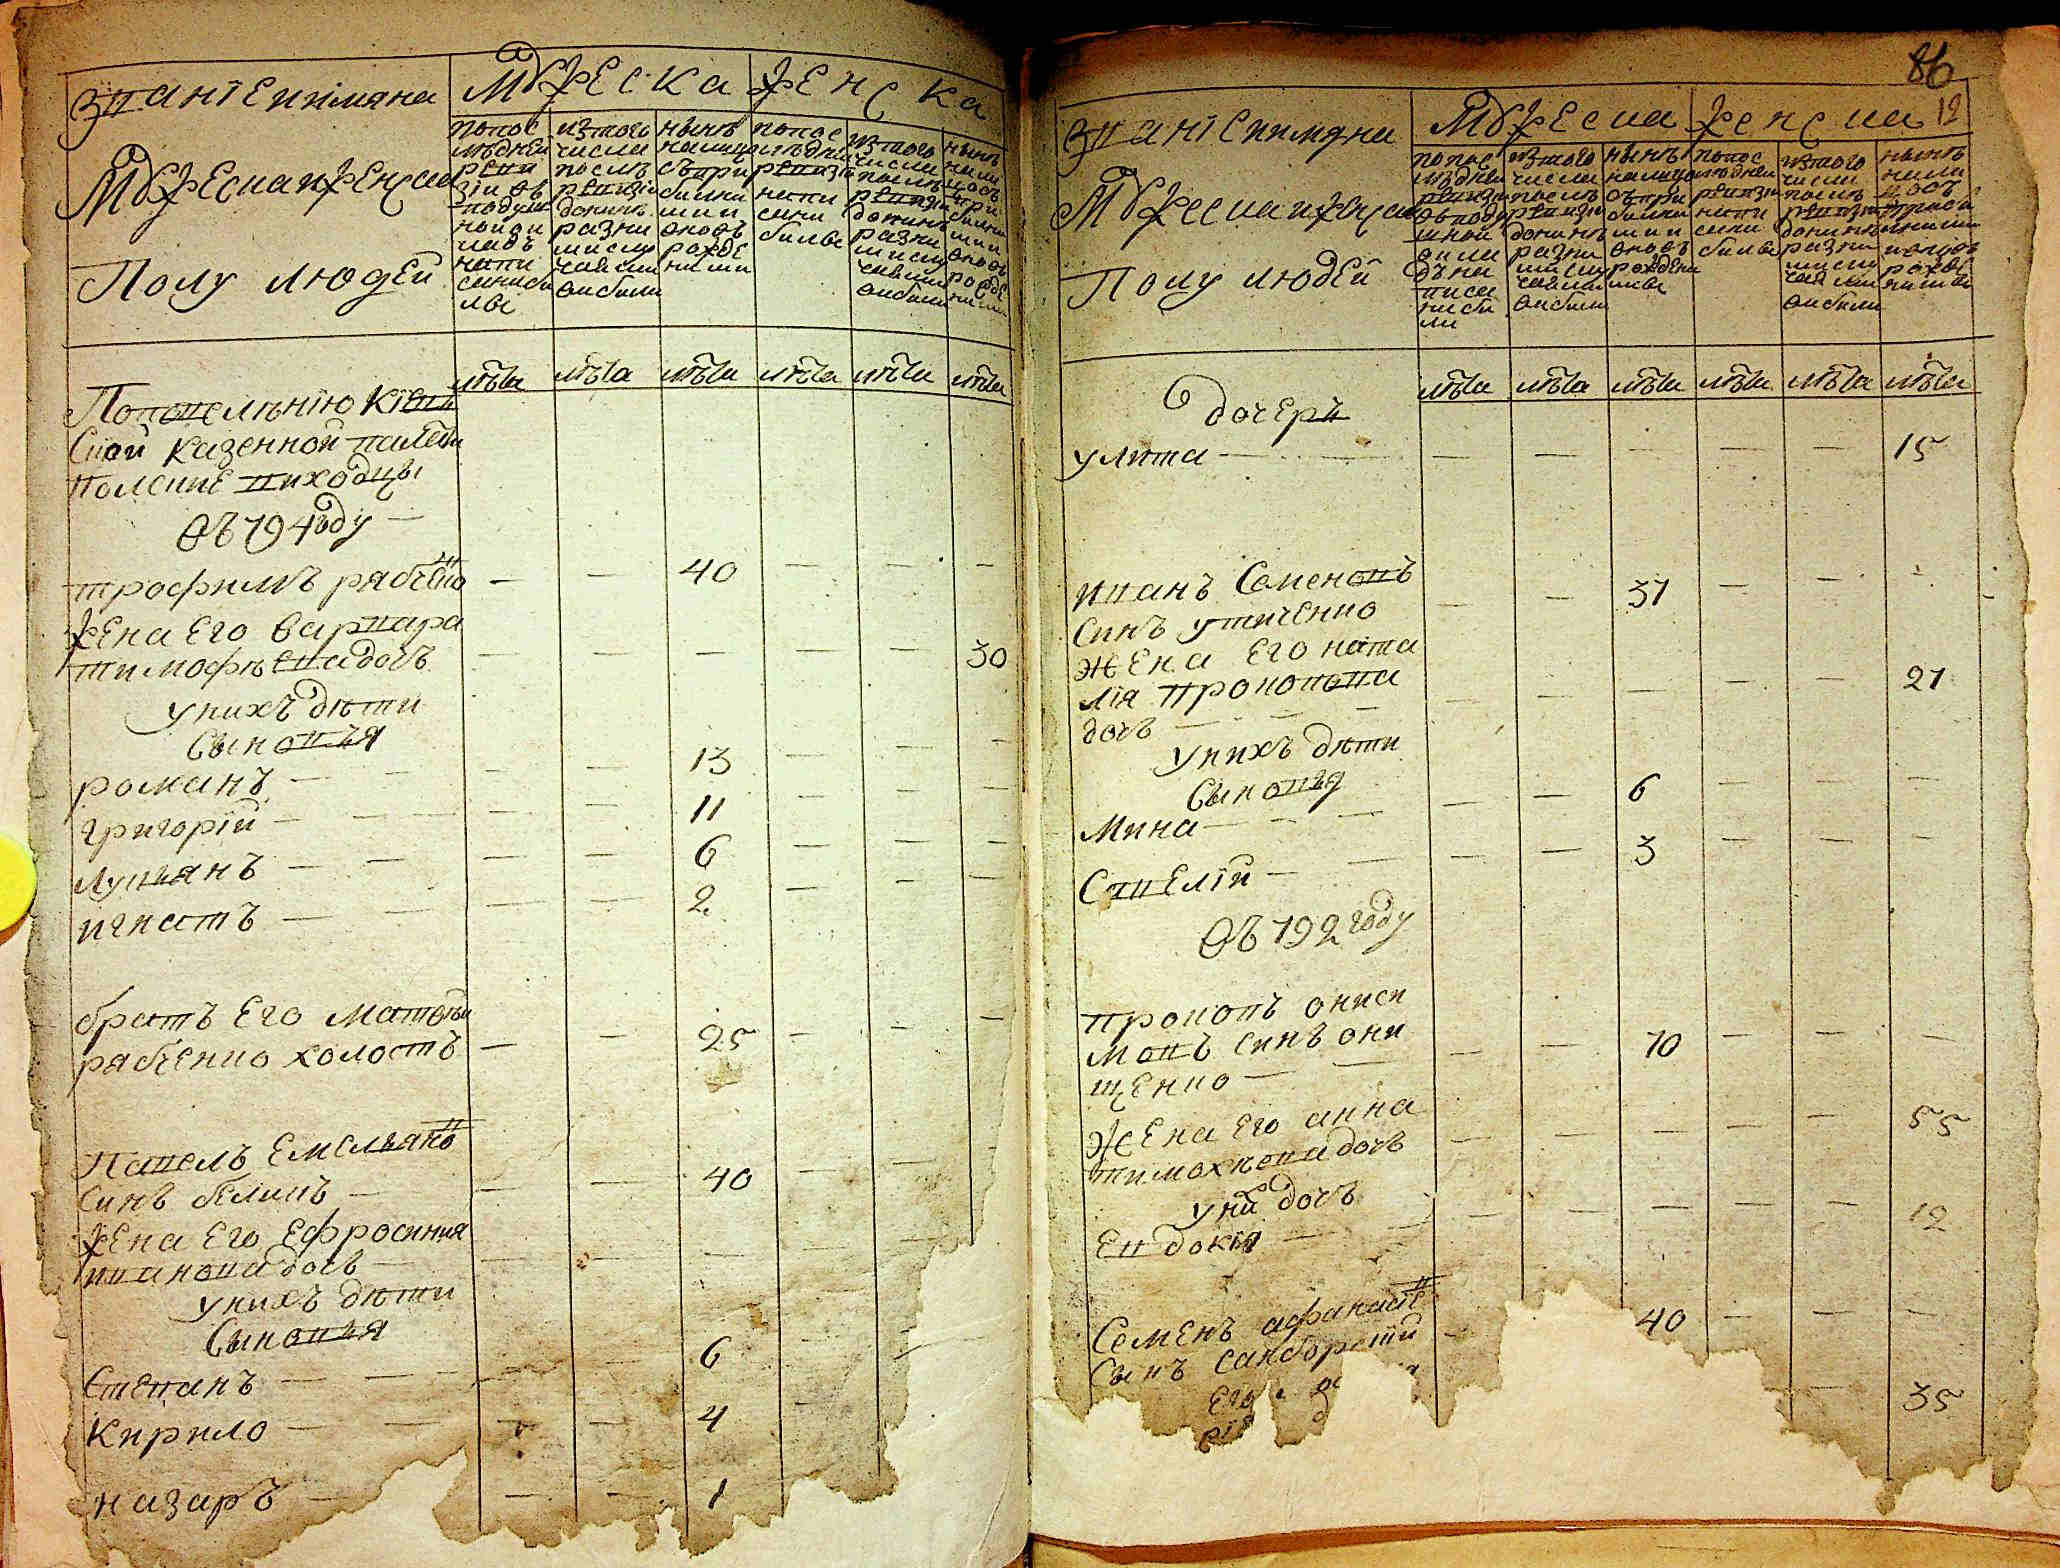 Званіе и имяна
Мужеска и женска
Полу людей
Мужеска
Женска
по пос
лѣдней
реви
зіи въ
подуш
ной ок
ладъ
напи
саны бы
лы
изъ того
числа
послѣ
ревизіи
до нынѣ
разны
ми слу
чаями
выбыли
нынѣ
на лицо
съ при
былы
ми и
вновь
рожде
ными
по пос
лѣдней
ревизіи
напи
саны
былы
изъ того
числа
послѣ
ревизіи
до нынѣ
разны
ми слу
чаями
выбыли
нынѣ
на ли
цо съ
при
былы
ми и
вновь
рожде
ными
лѣта лѣта лѣта лѣта лѣта лѣта
По повелѣнію Кіев
ской казенной палаты
польскіе выходцы
Въ 794 году —
трофимъ рябченко — — 40 — — —
жена его варвара
тимофѣева дочъ — — — — — 30
у нихъ дѣти
Сыновья
романъ — — — 13 — — —
григорій — — — 11 — — —
Лукьянъ — — — 6 — — —
игнатъ — — — 2 — — —
братъ его матвѣй
рябченко холостъ — — 25 — — —
Павелъ Емельяновъ
синъ бѣликъ — — — 40 — — —
жена его Ефросиния
иванова дочъ — — — —
у нихъ дѣти
Сыновья
Степанъ — — — 6
Кирило — — — 4 —
назаръ — — — 1
86
12
Званіе и имяна
Мужеска и женска
Полу людей
Мужеска
женска
по пос
лѣдней
ревизіи
въ поду
шной
окла
дъ на
писа
ни бы
ли
изъ того
числа
послѣ
ревизіи
до нынѣ
разны
ми слу
чаями
выбыли
нынѣ
на лицо
съ при
былы
ми и
вновь
рождены
ми
по пос
лѣдней
ревизіи
напи
сани
былы
изъ того
числа
послѣ
ревизіи
до нынѣ
разны
ми слу
чаями
выбыли
нынѣ
на ли
цо съ
прибы
лыми
и вновь
рожде
ными
лѣта лѣта лѣта лѣта лѣта лѣта
дочеръ
улита — — — — — — 15
иванъ Семеновъ
синъ утиченко — — 37 — — —
Жена его ната
лія прокопова
дочъ — — — — — — 21
у нихъ дѣти
Сыновья
Мина — — — 6 — — —
Савелій — — — 3 — — —
Въ 792 году
прокопъ ониси
мовъ синъ они
щенко — — — 70 — — —
Жена его анна
тимохѣева дочъ — — — — — 55
у ній дочъ
Евдокія — — — — — — 12
Семенъ афанасіев
Сынъ санборскій — 40 — — —
его
35